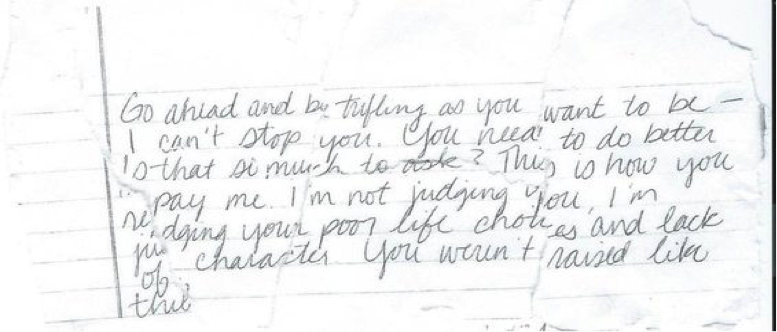 Go ahead and be trifling as you want to be –
I can't stop you. You need to do better
Is that so much to ask? This is how you
repay me. I'm not judging you, I'm
judging your poor life choices and lack
of character You weren't raised like
this